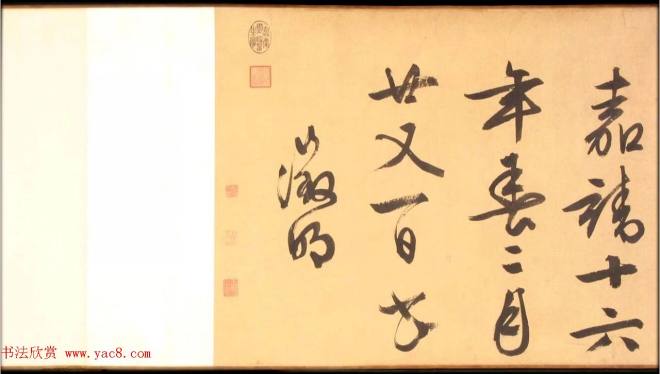 嘉靖十六
年春二月
廿又一日
徵明
书法欣赏 www.yac8.com